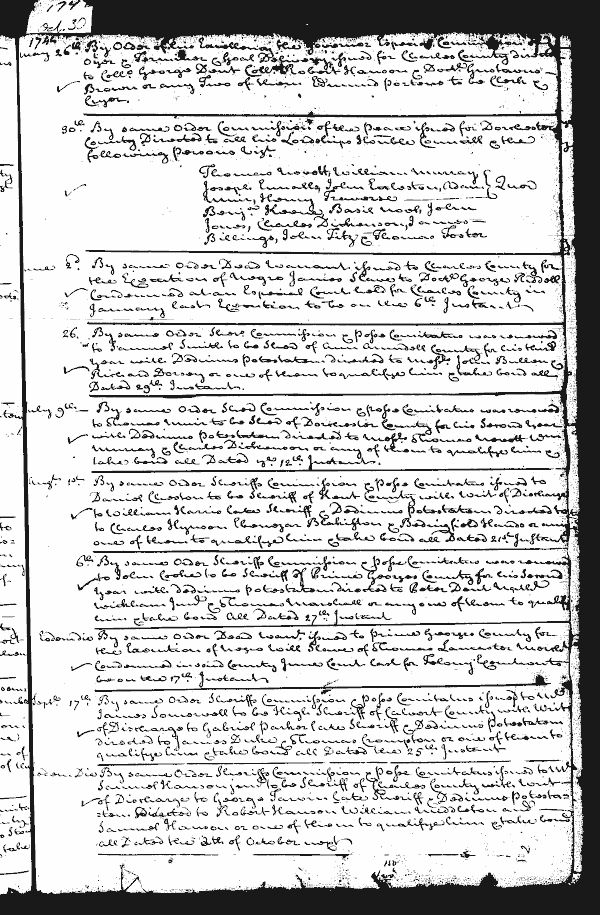 174
Oct. 30
1744
May 26th By Order of his Excellency the Governor Especial Commission of
Oyer & Terminer & Goal Delivery issued for Charles County directed
to Collo. George Dent Collo. Robert Hanson & Doctr. Gustavus
Brown or any Two of them Edmund Porteus to be Clerk
30th By same Order Commission of the Peace issued for Dorchester
County Directed to all his Lordships Honble Councill & the
following Persons Vizt.
Thomas Nevett, William Murray
Joseph Ennalls, John Eccleston, Quor
Muir, Henry
Benja. Keene, Basil Noel, John
Jones, Charles Dickenson, James
Billings, John & Thomas Foster
2d. By same Order Dead Warrant issued to Charles County for
the Execution of Negro James Slave to Doctr. George
Condemned at an Especial Court held for Charles County in
January last Execution to be on the 6th Instant
26. By same Order Shers Commission & Posse Comitatus was renewed
to Samuel Smith to be Shed of Ann Arundell County for his third
year with Dedimus Potestatem directed to Messrs John Bullen &
Richard Dorsey or one of them to qualify him & take bond all
Dated 29th Instant.
July 9th By same Order Shed Commission & Posse Comitatus was renewed
to Thomas Muir to be Shed of Dorchester County for his Second year
with Dedimus Potestatem directed to Messrs Thomas Nevett Wm
Murray & Charles Dickenson or any of them to qualify him &
take bond all Dated 12th Instant.
By same Order Sheriffs Commission & Posse Comitatus issued to
Daniel Cheston to be Sheriff of Kent County with Writ of Discharge
to William Harris late Sheriff & Dedimus Potestatem directed to
to Charles Hynson Ebenezer Blakiston & Bedingfield Hands or any
one of them to qualify him & take bond all Dated 21st Instant
6th By same Order Sheriffs Commission & Posse Comitatus was renewed
to John Cooke to be Sheriff of Prince Georges County for his Second
Year with Dedimus Potestatem directed to Peter Dent
& Thomas Marshall or any one of them to qualify
him & take bond All Dated 27th Instant
Eodem Die By same Order Dead Warrt. issued to Prince Georges County for
the Execution of Negro Will Slave of Thomas Lancaster
Condemned in said County June Court last for Felony Execution to
be on the 17th Instant
Septr. 17th By same Order Sheriffs Commission & Posse Comitatus issued to Mr
James Somervell to be High Sheriff of Calvert County with Writ
of Discharge to Gabriel Parker late Sheriff & Dedimus Potestatem
directed to James Duke & Thomas Crompton or one of them to
qualify him & take bond all Dated the 25th Instant
Eodem Die By same Order Sheriffs Commission & Posse Comitatus issued to Mr
Samuel Hanson junr to be Sheriff of Charles County with Writ
of Discharge to George late Sheriff & Dedimus Potesta=
=tem directed to Robert Hanson William Middleton and
Samuel Hanson or one of them to qualify him & take bond
all Dated the of October next